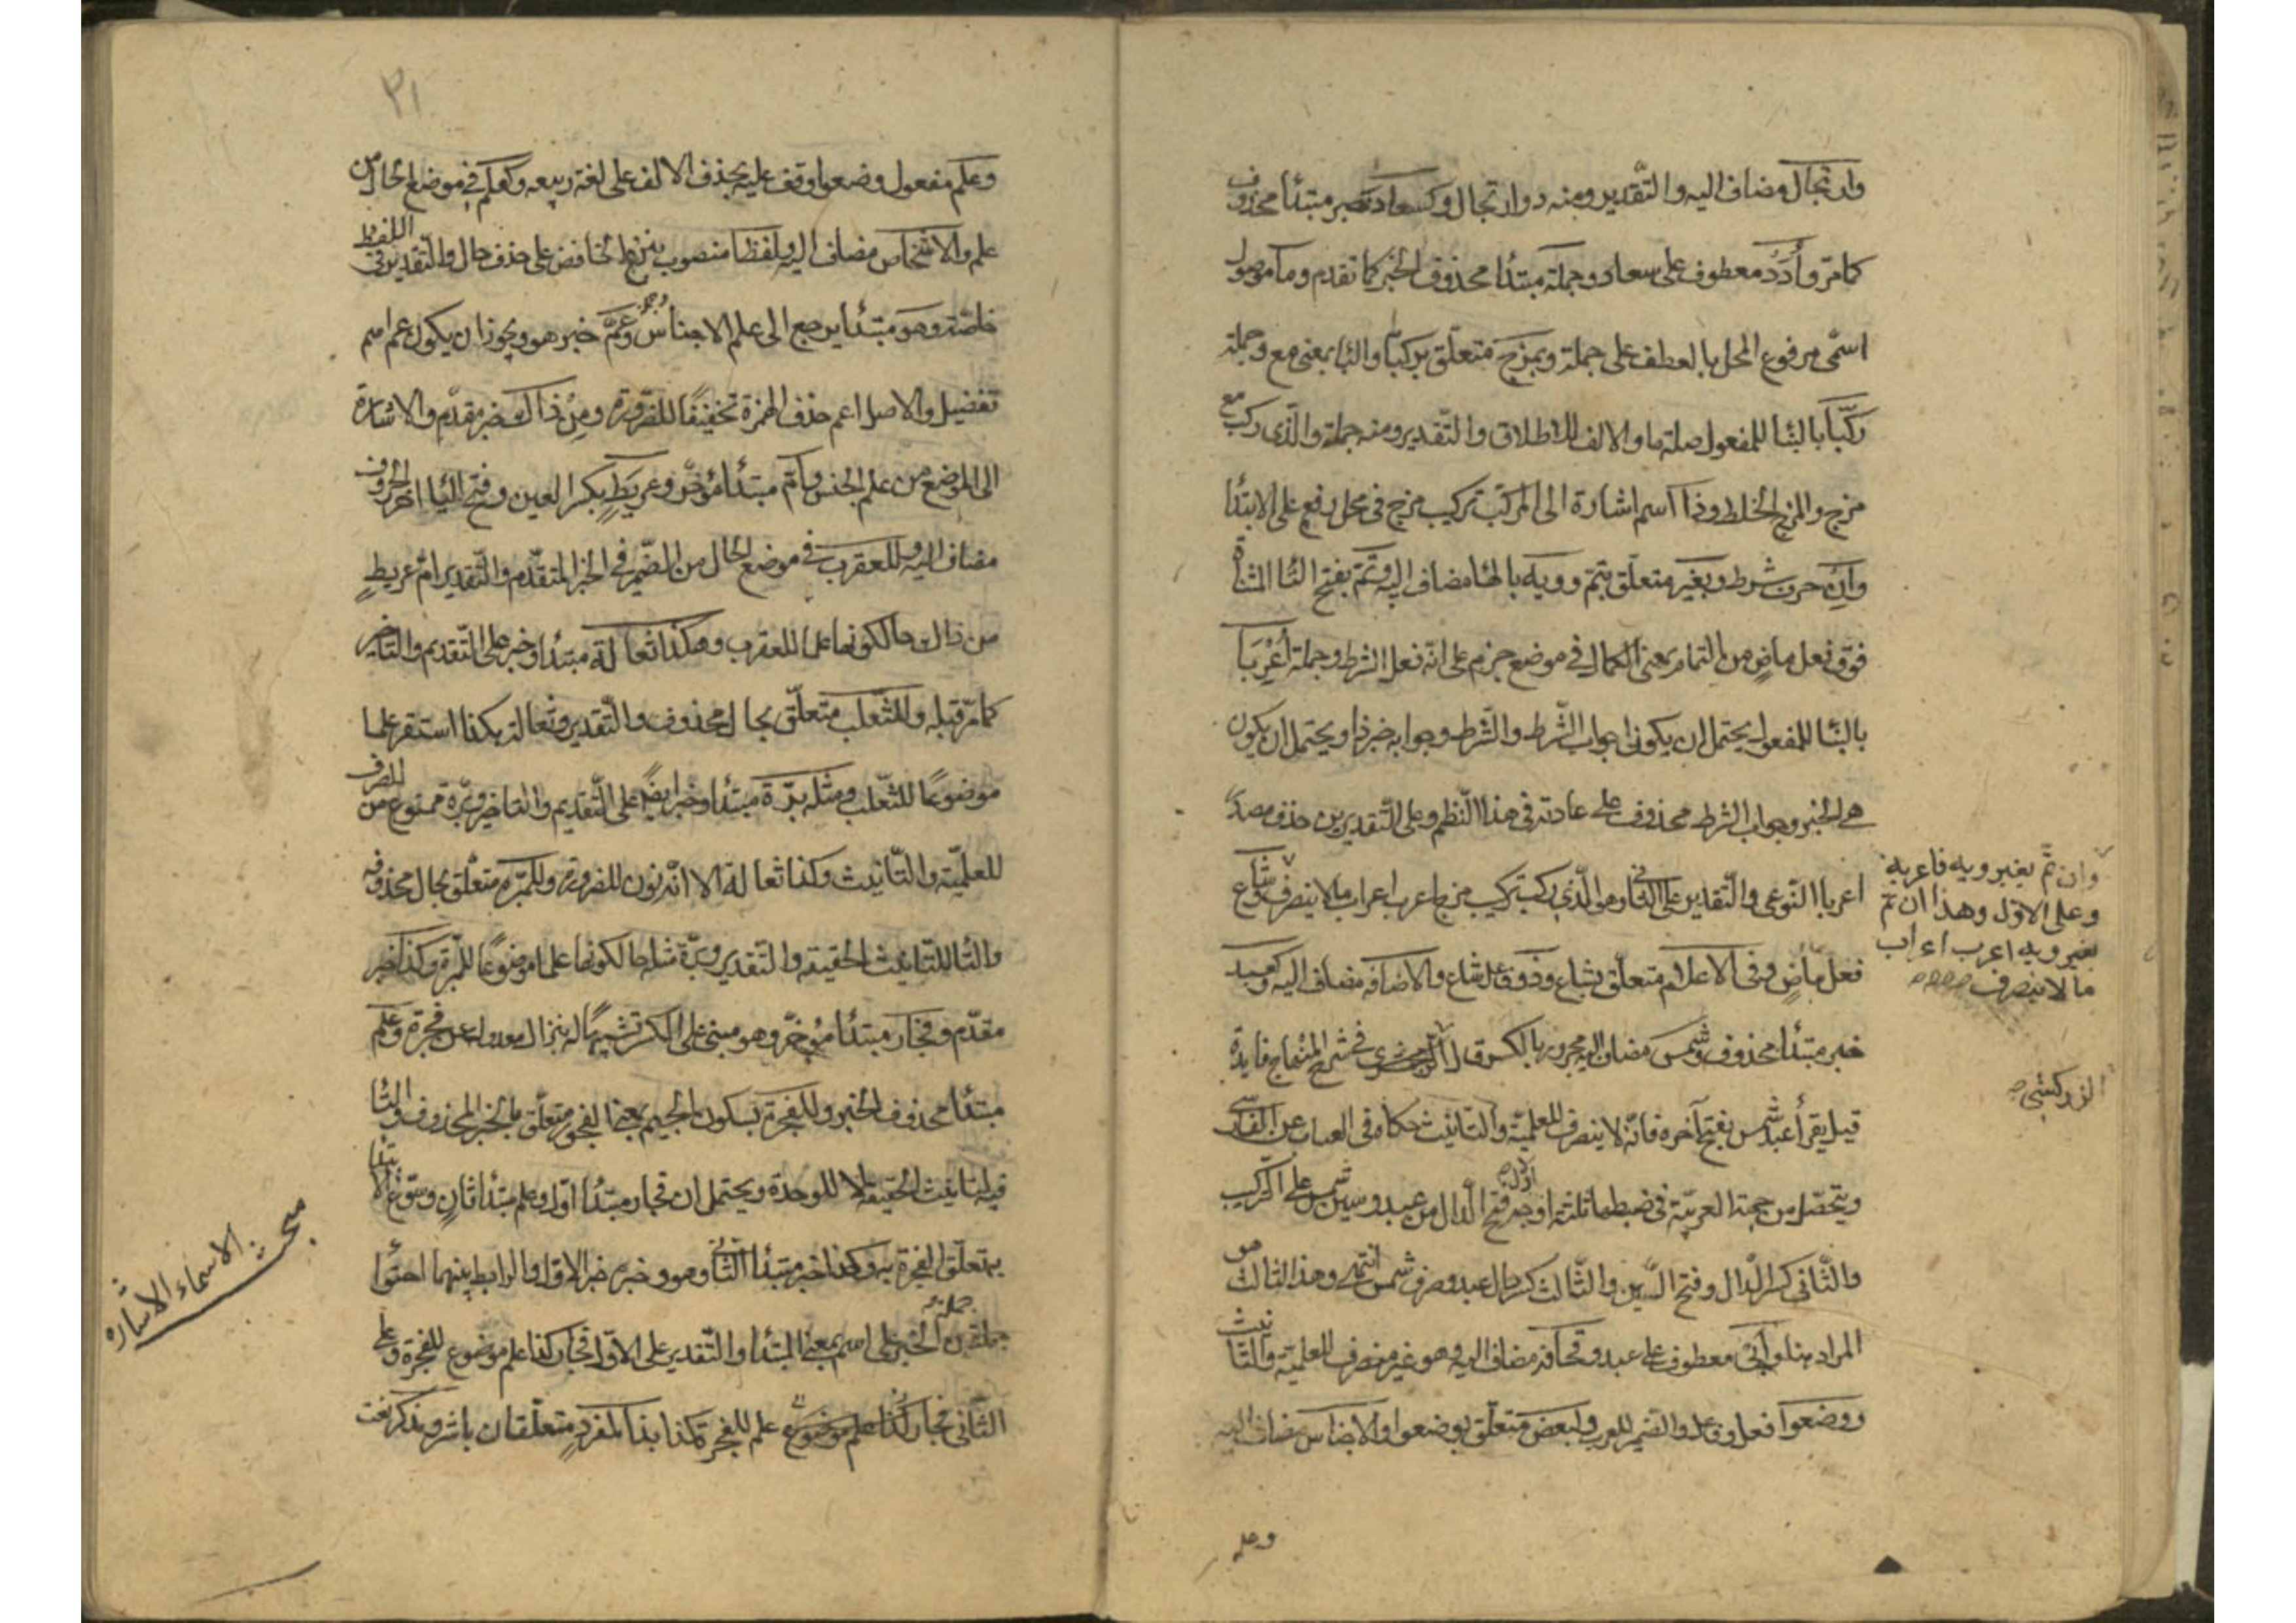 وارتجال مضاف اليه والتقدير ومنه ذو ارتجال وكسعاد خبر مبتدأ محذوف
كما مرّ وأُدَد معطوف على سعاد وجملة مبتدأ محذوف الخبر كما تقدم وما موصول
اسمّى مرفوع المحل بالعطف على جملة وبمزج متعلّق بركبا والبا بمعنى مع وجملة
ركّبا بالبنا للمفعول صلة ما والالف للاطلاق والتّقدير ومنه جملة والّذى ركب مع
مزج والمزج الخلط وذا اسم اشارة الى المركب تركيب مزج فى محل رفع على الابتدا
وان حرف شرط وبغير متعلّق بتمّ وويه بالها مضاف اليه وتَمّ بفتح التّا المثناة
فوق فعل ماضٍ من التمام بمعنى الكمال فى موضع جزم على انّه فعل الشرط وجملة أُعْرِبَا
بالبنا للمفعول يحتمل ان يكون جواب الشّرط والشّرط وجوابه خبر ذا ويحتمل ان يكون
هى الخبر وجواب الشرط محذوف على عادته فى هذا النّظم وعلى التّقديرين حذف مصدر
اعربا النّوعى والتّقدير على الثانى وهو الّذى ركب تركيب مزج اعرب اعراب ما لا ينصرف وشاع
فعل ماضٍ وفى الاعلام متعلّق بشاع وذو فاعل شاع والاضافة مضاف اليه وكعبد
خبر مبتدأ محذوف وشمس مضاف اليه مجرور بالكسر قال فى شرح المنهاج فايدة
قيل يقرأ عبد شمس بفتح آخره فانّه لا ينصرف للعلميّة والتّانيث حكاه فى العباب عن الفارسى
ويتحصّل من جهة العربيّة فى ضبطها ثلثة اوجه اوّله فتح الدّال من عبد وسين شمس على التركيب
والثّانى كسر الدّال وفتح السّين والثّالث كسر دال عبد وصرف شمس انتهى وهذا الثالث هو
المراد هنا وأبى معطوف على عبد وقحافة مضاف اليه وهو غير منصرف للعلميّة والتّانيث
ووضعوا فعل وفاعل والضمير للعرب ولبعض متعلّق بوضعوا والاجناس مضاف اليه
وعلم
وان تمّ بغير ويه فاعربه
وعلى الاوّل وهذا ان تمّ
بغير ويه اعرب اعراب
ما لا ينصرف
الزركشى
٣١
وعلم مفعول وضعوا وقف عليه بحذف الالف على لغة ربيعه وكعلم فى موضع الحال من
علم والاشخاص مضاف اليه ولفظا منصوب بنزع الخافض على حذف حال والتّقدير فى اللفظ
خاصّة وهو مبتدأ يرجع الى علم الاجناس وعَمَّ خبر هو ويجوز ان يكون عم اسم
تفضيل والاصل اعم حذف الهمزة تخفيفًا للضّرورة ومِنْ ذاك خبر مقدّم والاشارة
الى الموضع من علم الجنس وأمّ مبتدأ مؤخّر وعِرْيَطٍ بكسر العين وفتح اليا اخر الحروف
مضاف اليه وللعقرب فى موضع الحال من الضّمير فى الخبر المتقدّم والتّقدير امّ عريطٍ
من ذاك حال كونها علما للعقرب وهكذا ثعالة مبتدأ وخبر على التّقديم والتاخير
كما مرّ قبله وللثّعلب متعلّق بحال محذوف والتّقدير وثعالة هكذا استقر علما
موضوعًا للثّعلب ومثله برّة مبتدأ وخبر ايضًا على التّقديم والتاخير وبرّة ممنوع من الصرف
للعلميّة والتّانيث وكذا ثعالة الا انّه نون للضرورة وللمبرّة متعلّق بحال محذوفه
والتّا للتّانيث الحقيقه والتقدير وبرّة مثله حال كونها علما موضوعًا للمبرّة وكذا خبر
مقدّم وفجار مبتدأ مؤخّر وهو مبنى على الكسر تشبيهًا له بنزال معدولة عن فجرة وعلم
مبتدأ محذوف الخبر وللفجرة بسكون الجيم بمعنى الفجور متعلّق بالخبر المحذوف والتّا
فيه لتانيث الحقيقة لا للوحدة ويحتمل ان فجار مبتدأ اوّل وعلم مبتدأ ثانٍ وسوّغ الابتدا
به تعلّق الفجرة به وكذا خبر مبتدأ الثّانى وهو وخبره خبر الاوّل والرابط بينهما احتوا
جملة الخبر على اسم بمعنى المبتدأ والتّقدير على الاوّل فجار كذا علم موضوع للفجرة وعلى
الثّانى فجار كذا علم موضوع علم للفجرة كذا بذا لمفردٍ متعلّقان باشر ومذكر نعت
مبحث الاسماء الاشاره